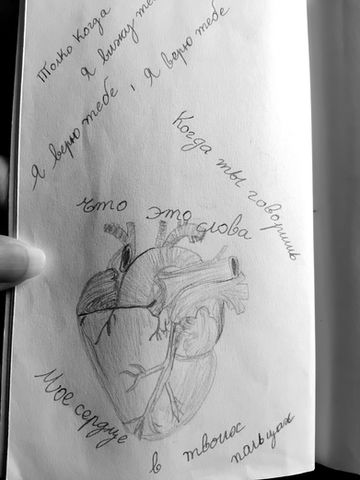 Только когда
Я вижу те
Я верю тебе, Я верю тебе
Когда ты говоришь
что это слова
Мое сердце
в твоих
пальцах